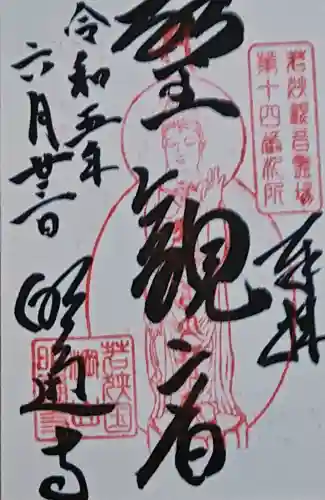 奉拝
若狭観音霊場
第十四番札所
聖観音
令和五年
六月廿二日
明通寺
若狭国
棡山
明通寺